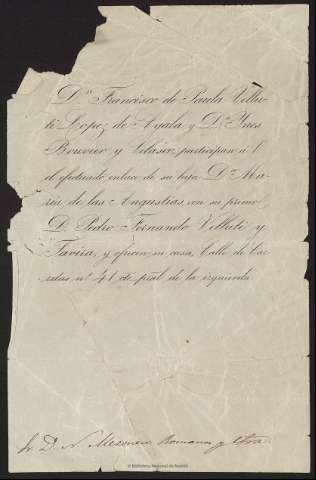 Dn. Francisco de Paula Villu-
ti Lopez de Ayala y Da. Ynes
Bouvier y Velasco, participan á V.
el efectuado enlace de su hija Da. Ma-
ria de las Angustias, con su primo
D. Pedro Fernando Villuti y
Tavira, y ofrecen su casa, Calle de
nº 41 cto. pral. de la izquierda
Sr. D. N. Mesonero Romanos y Sra.
© Biblioteca Nacional de España